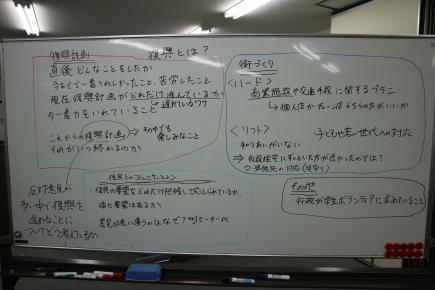 復興計画
復興とは？
直後 どんなことをしたか
今までで一番うれしかったこと、苦労したこと
現在 復興計画がどれだけ進んでいるか
→遅れているワケ
今一番力をいれていること
これからの復興計画 → その中でも楽しみなこと
それがいつ終わるのか
反対意見が
多い中で復興を
進めることに
ついてどう考えているか
住民とのコミュニケーション
・住民の要望をどれだけ把握し
・特に要望はあるか
・意見が食い違うのはなぜ？
街づくり
〈ハード〉
商業施設や交通手段に関するプラン
〈ソフト〉
子どもや若い世代への対応
知りあいがいない
⇒仮設住宅にずっといた方が良かったのでは？
(見守り)
その他
行政が学生ボランティアに求めていること